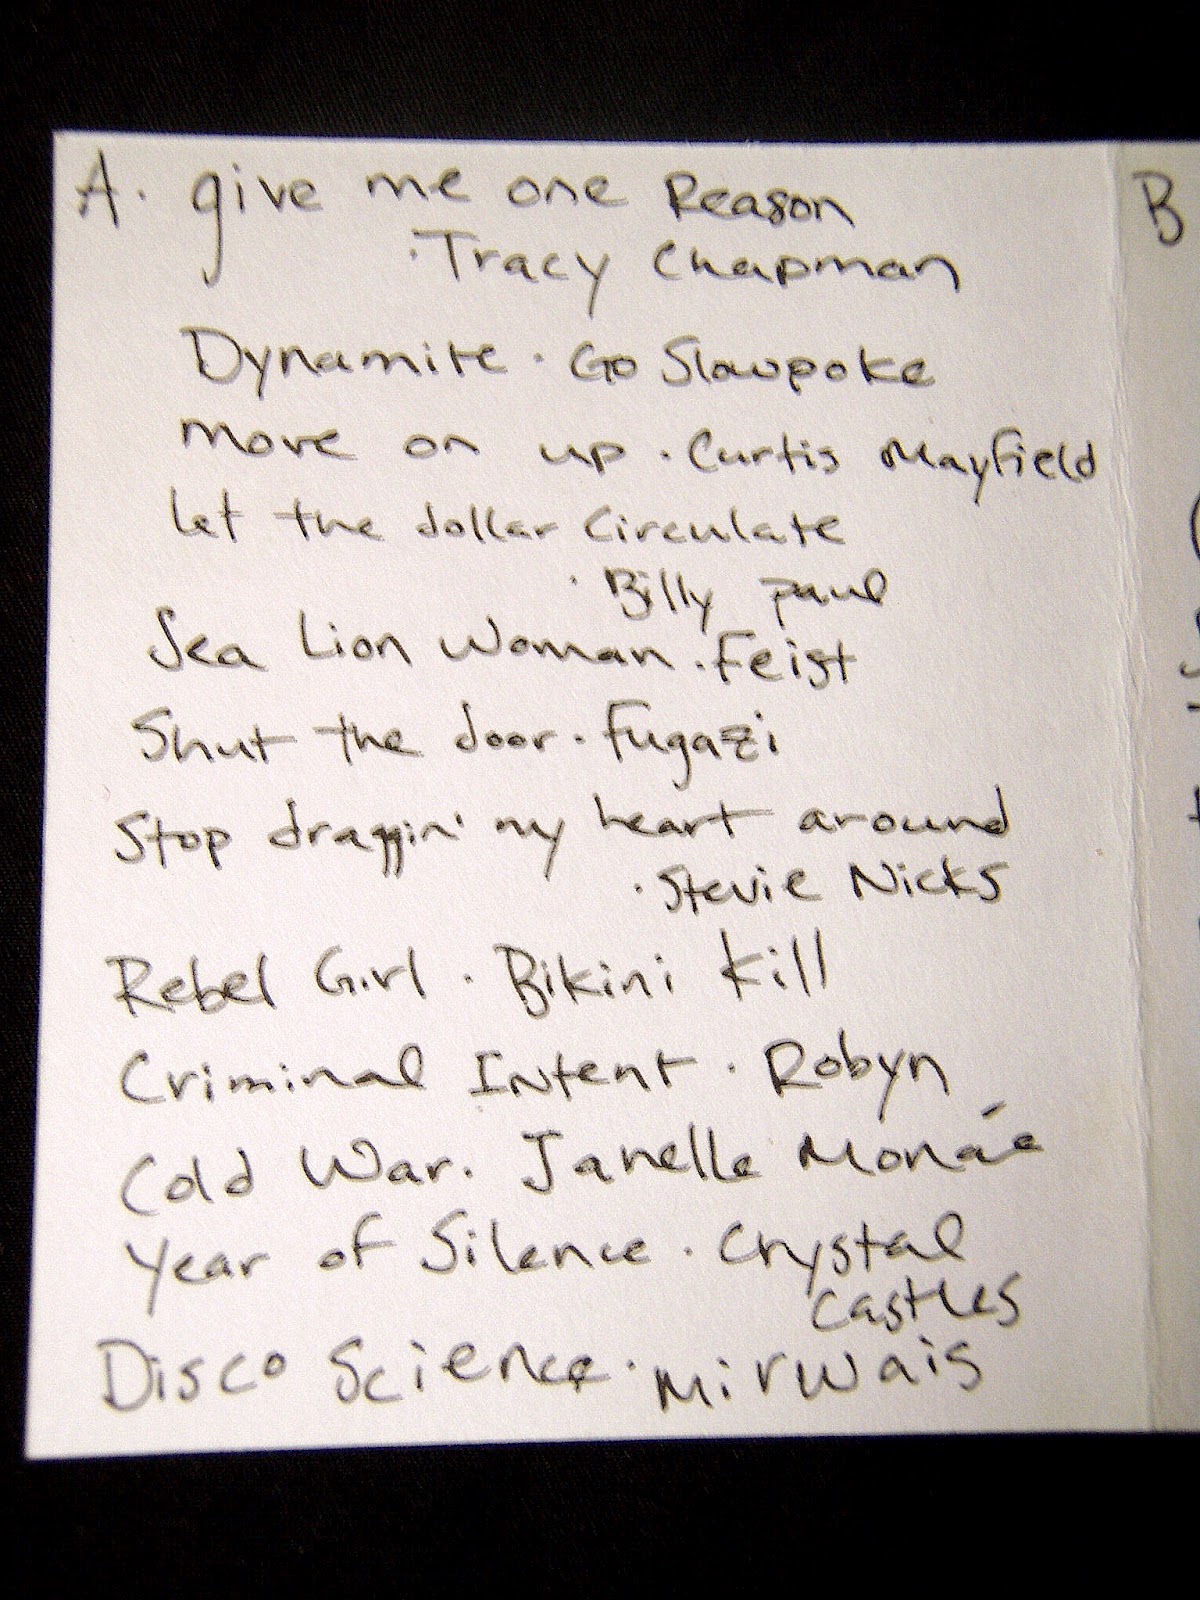 A. give me one Reason
·Tracy Chapman
Dynamite · Go Slowpoke
move on up · Curtis Mayfield
let the dollar Circulate
· Billy paul
Sea Lion Woman · Feist
Shut the door · Fugazi
Stop draggin' my heart around
· Stevie Nicks
Rebel Girl · Bikini Kill
Criminal Intent · Robyn
Cold War. Janelle Monáe
Year of Silence · Crystal
Castles
Disco Science · Mirwais
B